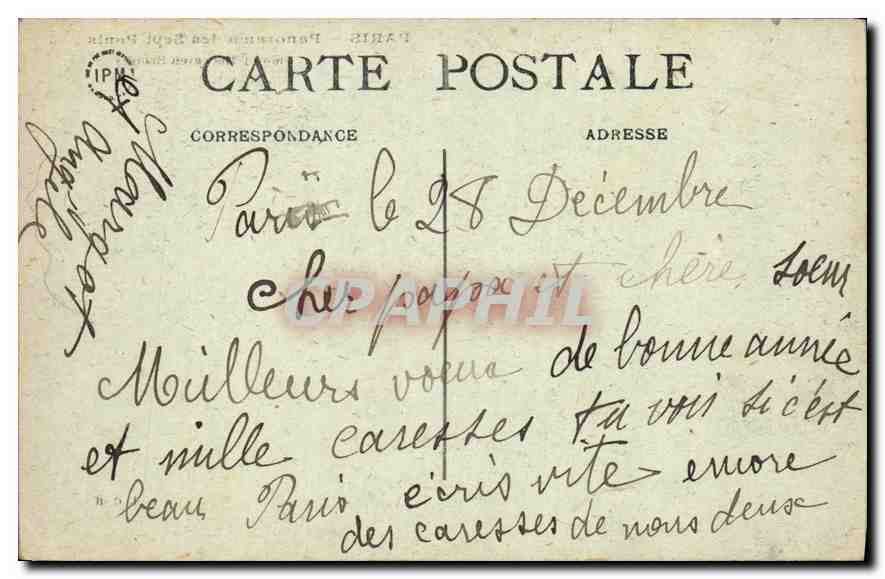 CARTE POSTALE
CORRESPONDANCE
ADRESSE
IPM
Paris le 28 Décembre
cher papa et chère soeur
Meilleurs voeux de bonne année
et mille caresses tu vois si c'est
beau Paris écris vite encore
des caresses de nous deux
Margot
et Angèle
CPAPHIL
PARIS - Panorama des Sept Ponts